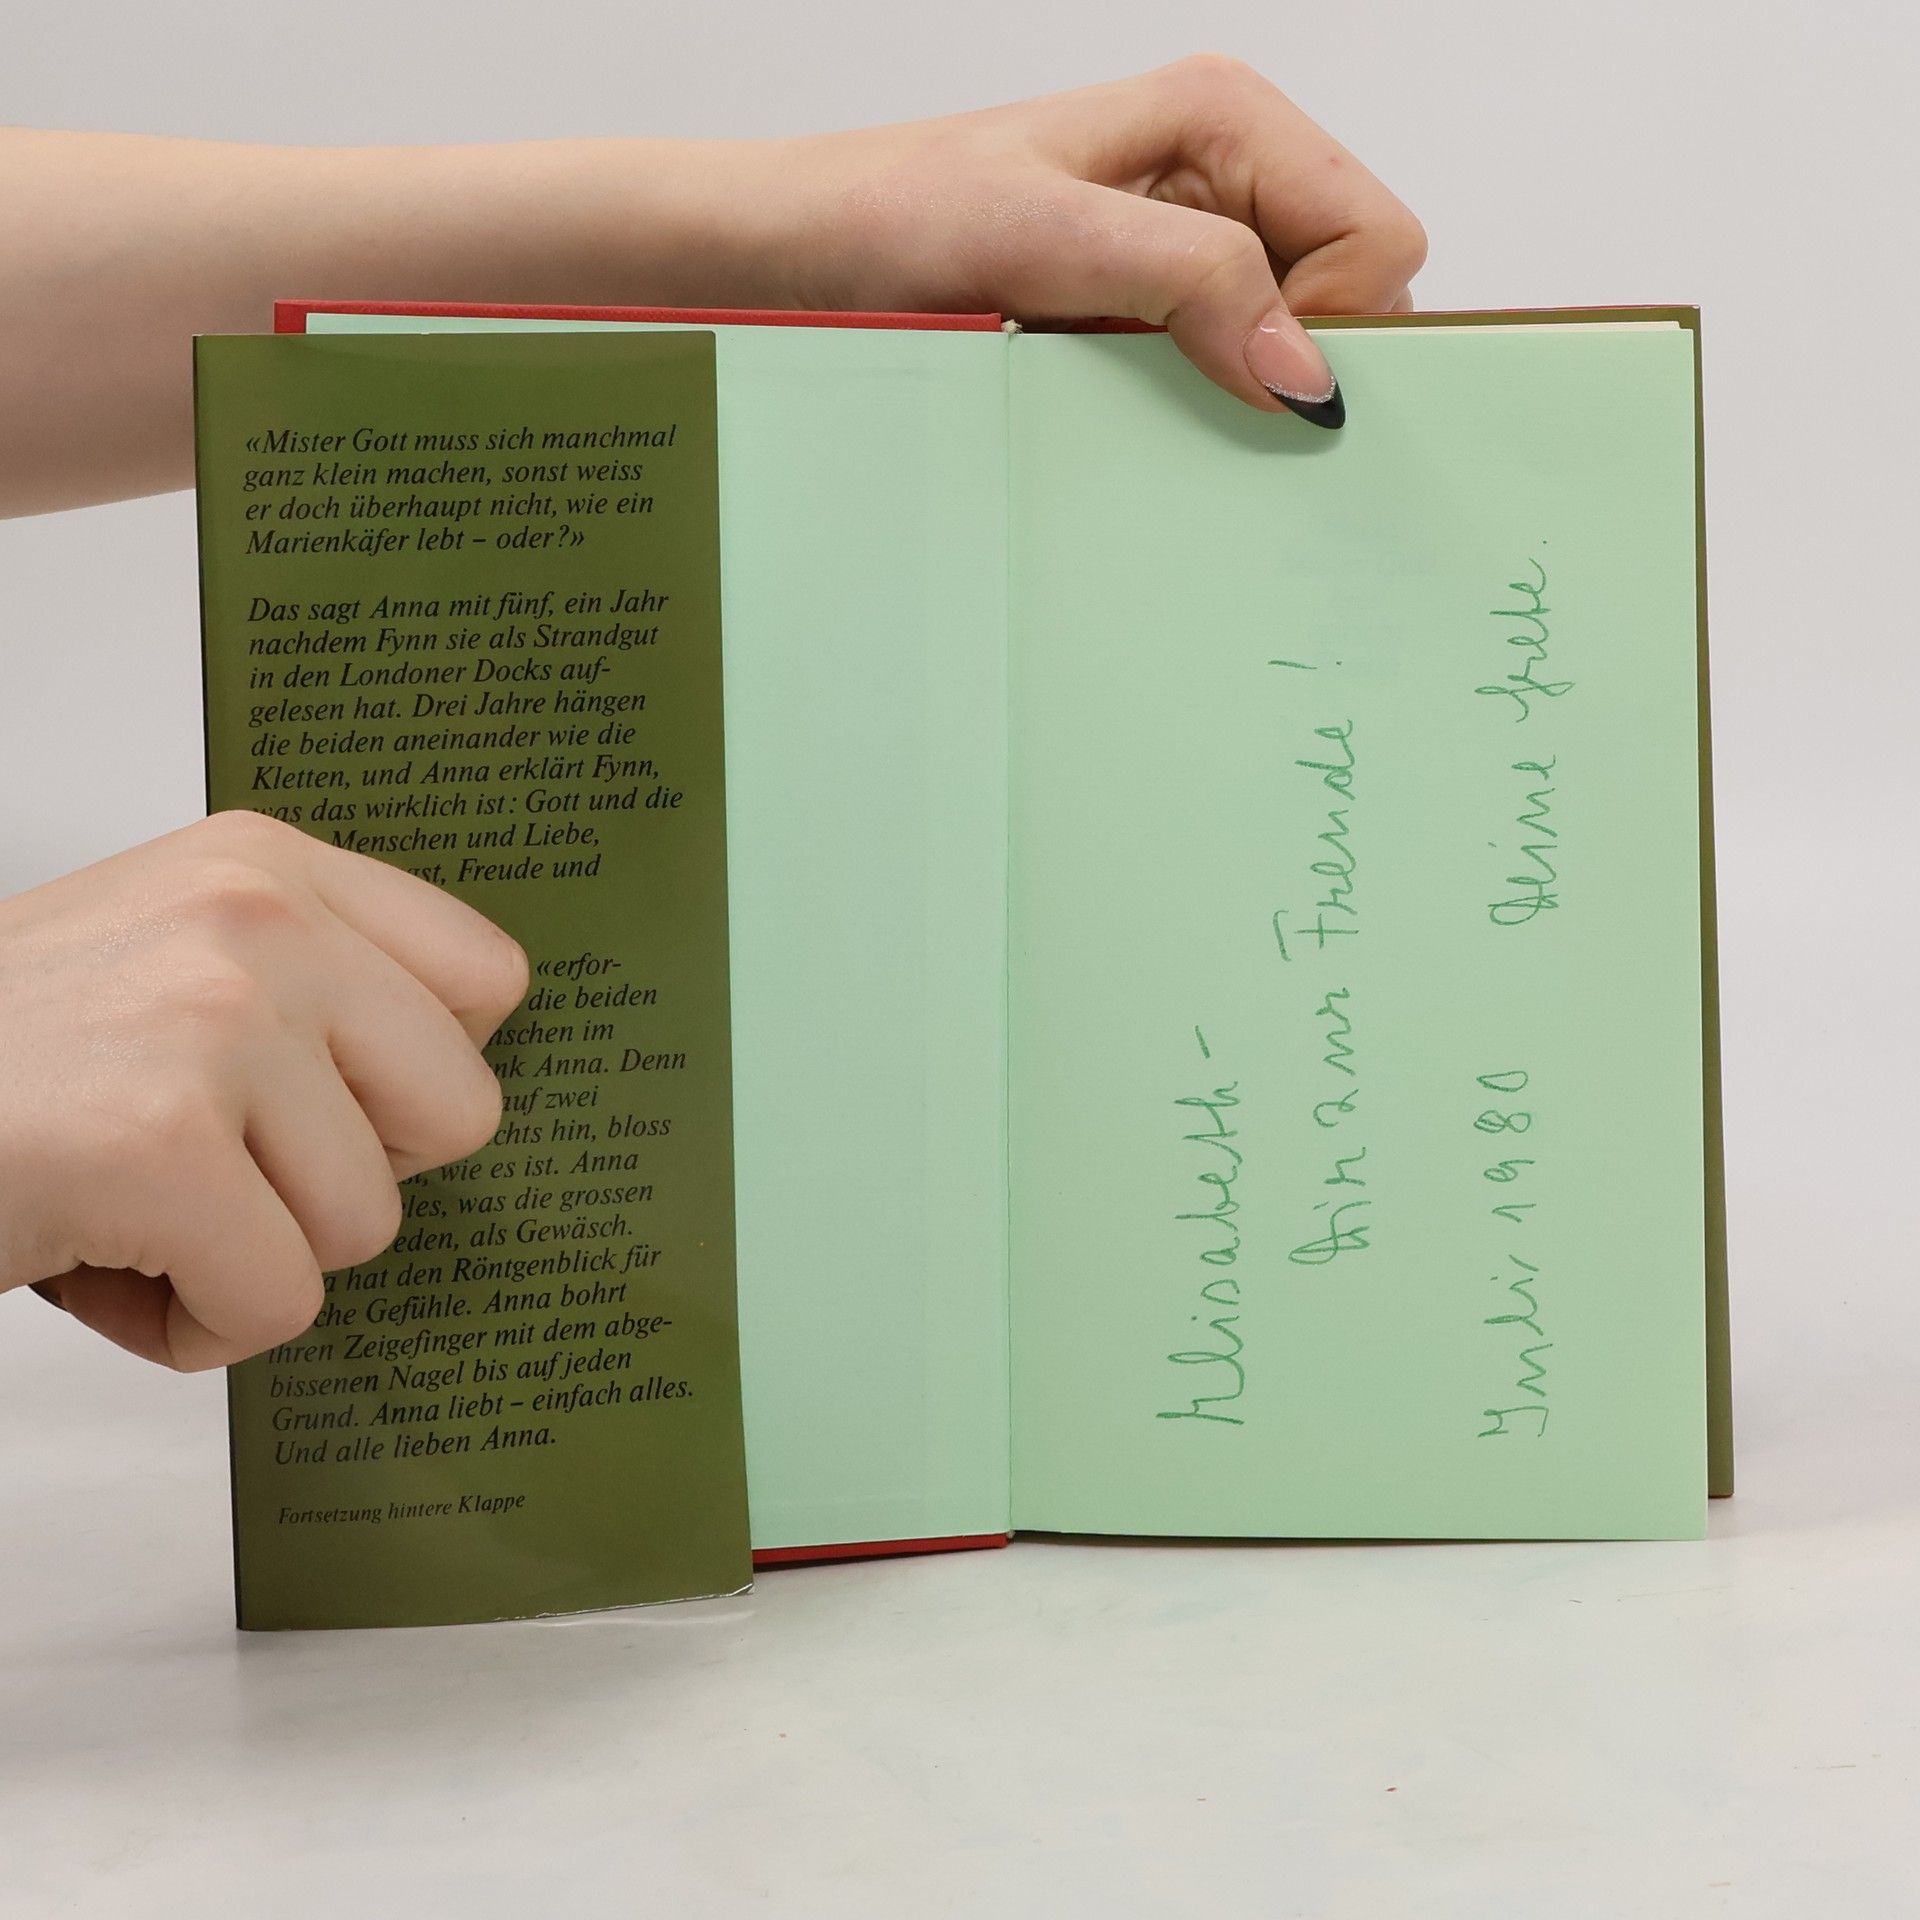 «Mister Gott muss sich manchmal
ganz klein machen, sonst weiss
er doch überhaupt nicht, wie ein
Marienkäfer lebt – oder?»
Das sagt Anna mit fünf, ein Jahr
nachdem Fynn sie als Strandgut
in den Londoner Docks auf-
gelesen hat. Drei Jahre hängen
die beiden aneinander wie die
Kletten, und Anna erklärt Fynn,
was das wirklich ist: Gott und die
Menschen und Liebe,
Freude und
«erfor-
die beiden
im
Anna. Denn
auf zwei
hin, bloss
wie es ist. Anna
was die grossen
als Gewäsch.
hat den Röntgenblick für
Gefühle. Anna bohrt
ihren Zeigefinger mit dem abge-
bissenen Nagel bis auf jeden
Grund. Anna liebt – einfach alles.
Und alle lieben Anna.
Fortsetzung hintere Klappe
Elisabeth –
Dir zur Freude!
Juli 1980 Deine Grete.